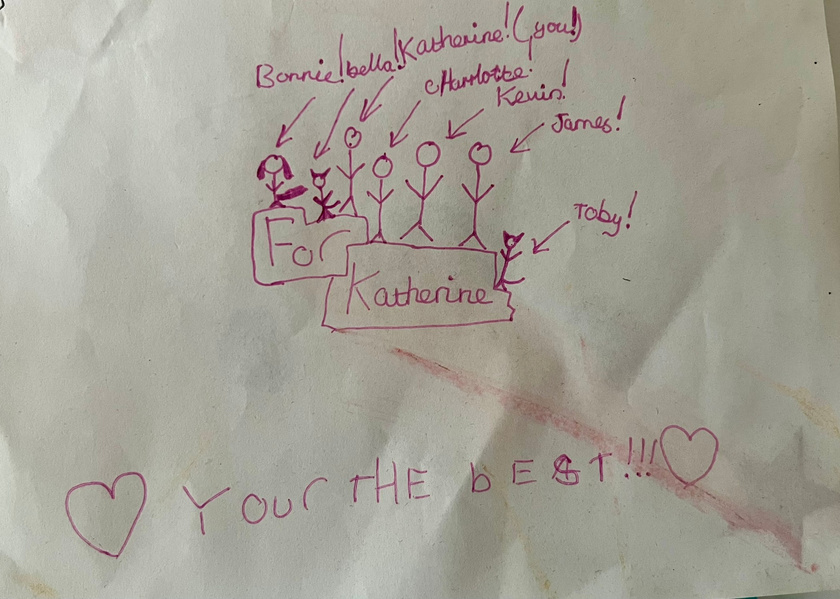 Bonnie! bella! Katherine! (you!)
cHarlotte!
Kevin!
James!
Toby!
For
Katherine
Your tHE bEST!!!